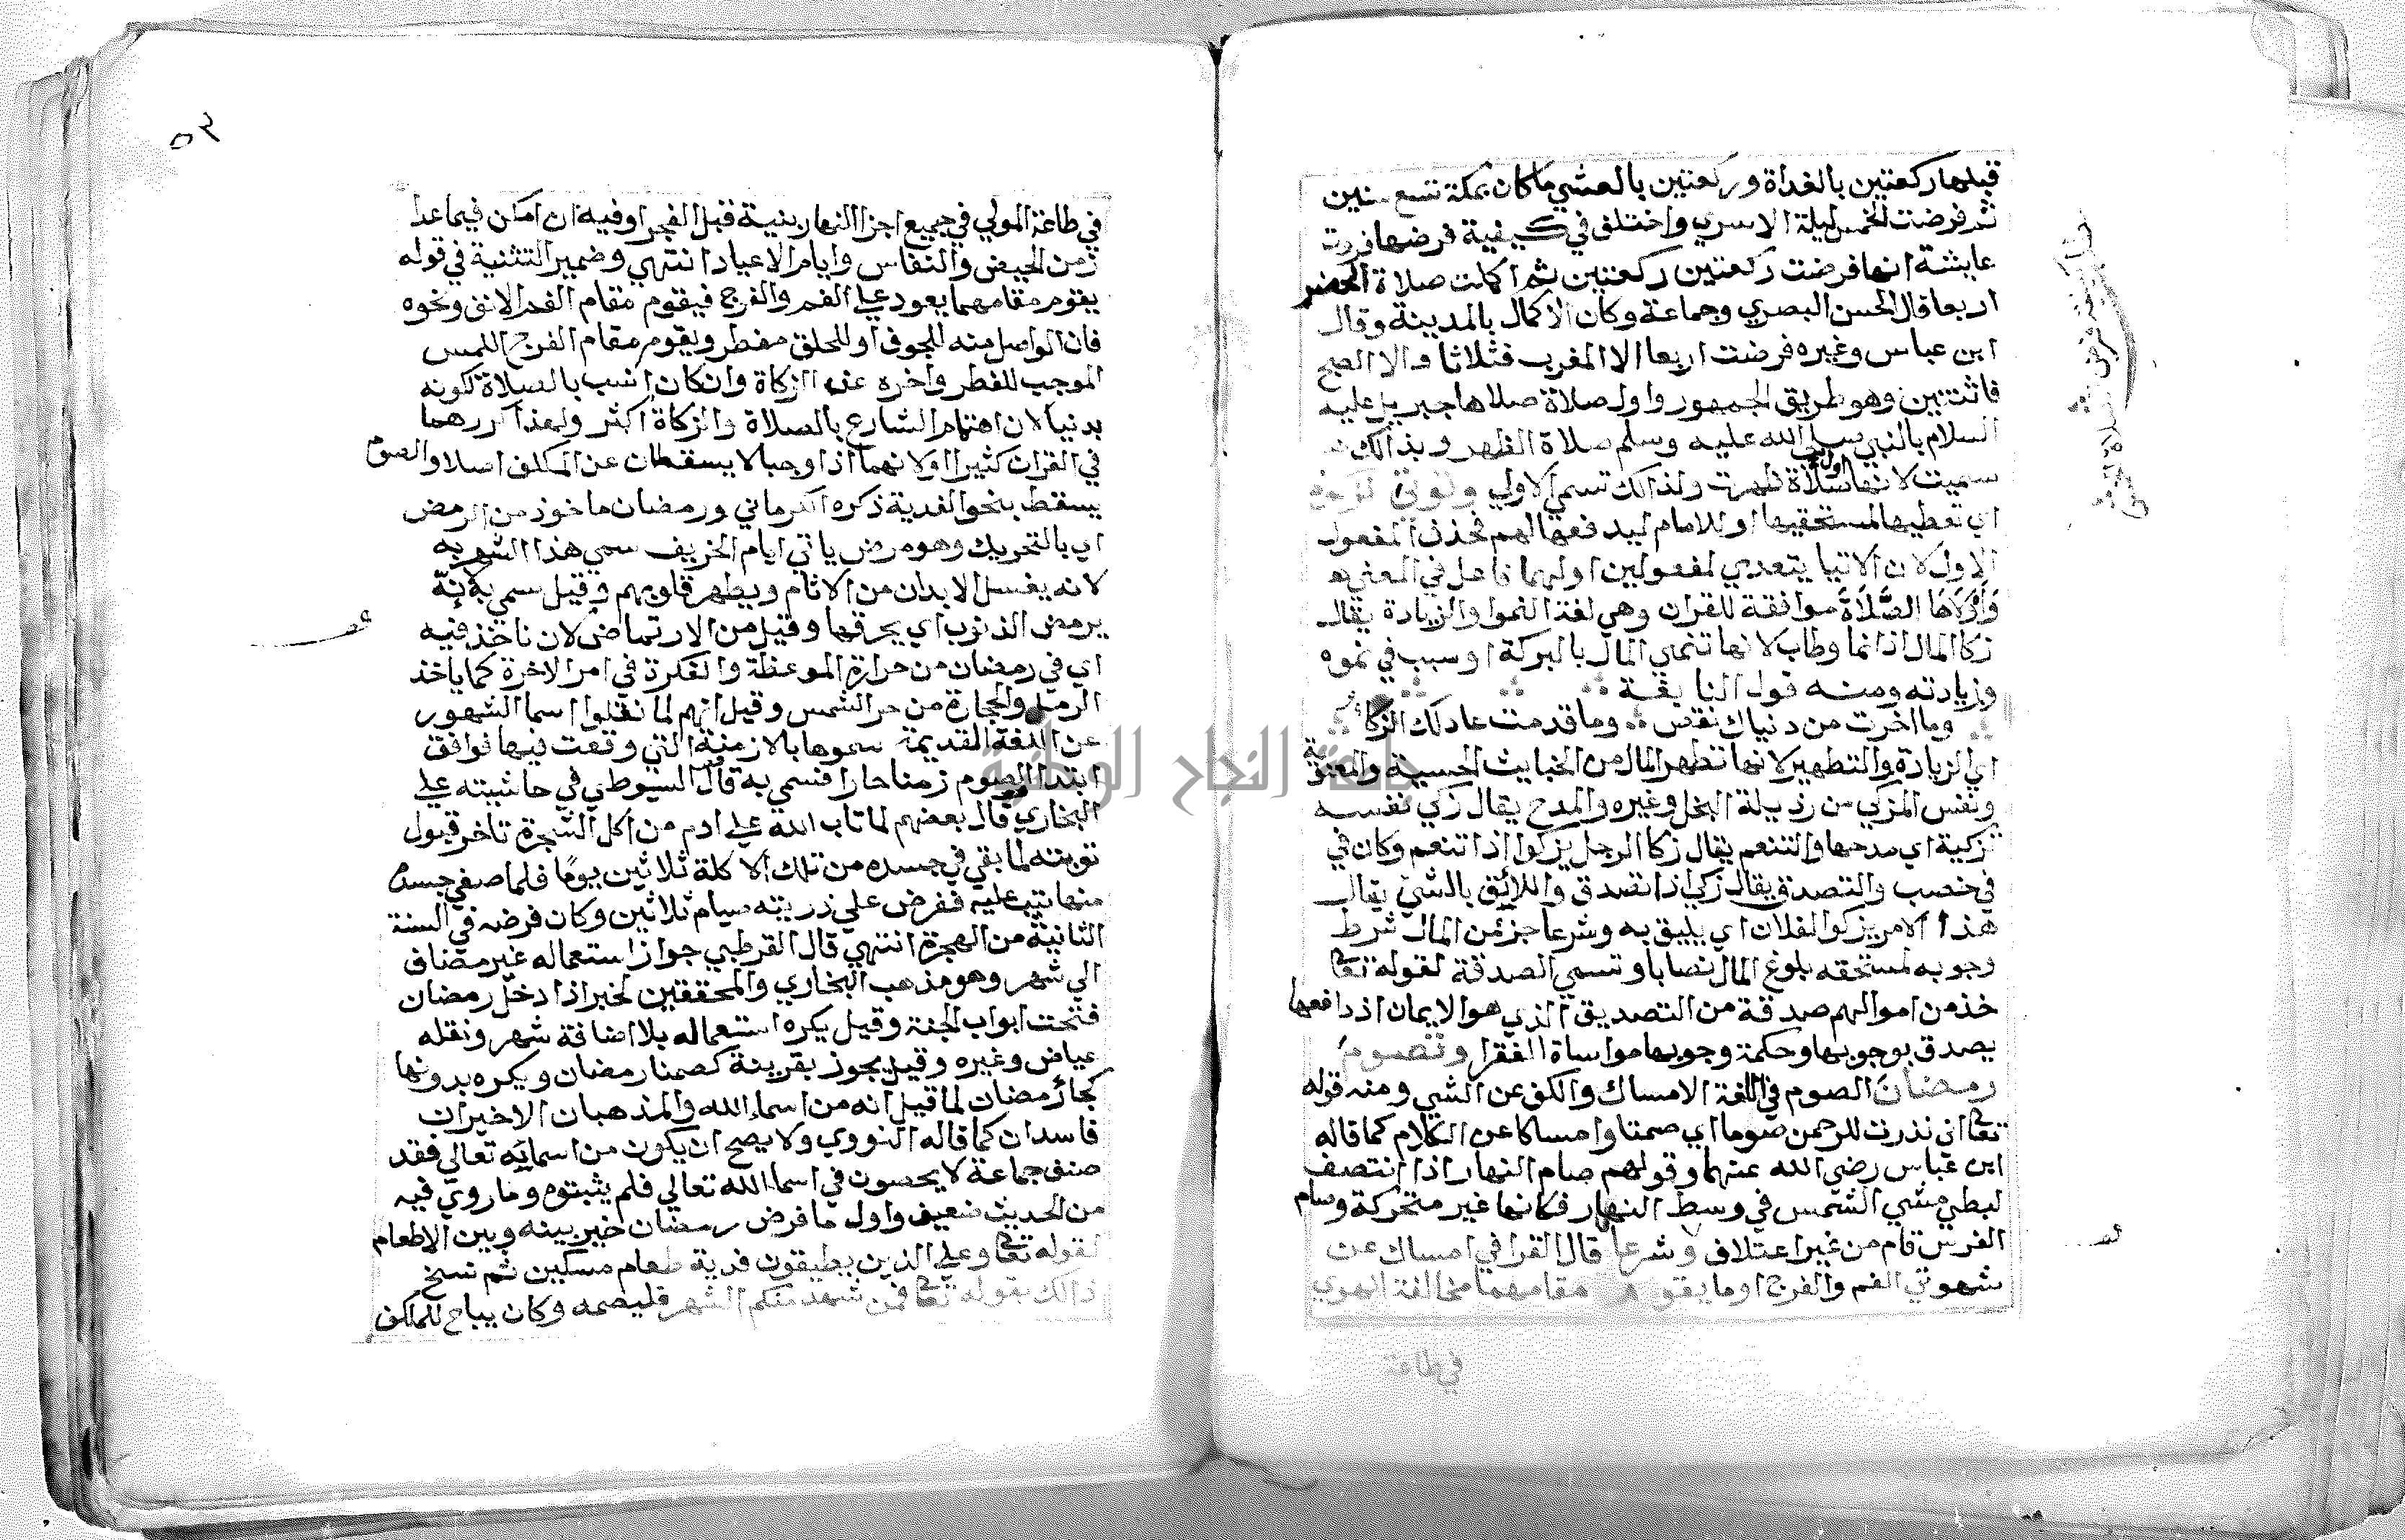 قبلها ركعتين بالغداة وركعتين بالعشي ما كان بمكة تسع سنين
ثم فرضت الخمس ليلة الاسري واختلف في كيفية فرضها فروت
عايشة انها فرضت ركعتين ركعتين ثم اكملت صلاة الحضر
اربعا قال الحسن البصري وجماعة وكان الاكمال بالمدينة وقال
ابن عباس وغيره فرضت اربعا الا المغرب فثلاثا والا الصبح
فاثنتين وهو طريق الجمهور واول صلاة صلاها جبريل عليه
السلام بالنبي صلي الله عليه وسلم صلاة الظهر وبذالك
سميت لانها اول صلاة ظهرت ولذالك تسمي الاولي وتوتي الزكوة
اي تعطيها لمستحقيها او للامام ليدفعها لهم فحذف المفعول
الاول لان الاتيا يتعدي لمفعولين اولهما فاعل في المعني
الصَّلَاةَ موافقة للقران وهي لغة النموا والزيادة يقال
زكا المال اذا نما وطاب لانها تنمي المال بالبركة او سبب في نموه
وزيادته ومنه قول النابغة
وما اخرت من دنياك نقص وما قدمت عاد لك الزكا
اي الزيادة والتطهير لانها تطهر المال من الخبايث الحسية والمعنوية
ونفس المزكي من رذيلة البخل وغيره والمدح يقال زكي نفسه
تزكية اي مدحها والتنعم يقال زكا الرجل يزكوا اذا تنعم وكان في
في خصب والتصدق يقال زكي اذا تصدق واللائق بالشي يقال
هذا الامر يزكوا لفلان اي يليق به وشرعا جزئمن المال شرط
وجوبه لمستحقه بلوغ المال نصابا وتسمي الصدقة لقوله تعا
خذ من اموالهم صدقة من التصديق الذي هو الايمان اذ دافعها
يصدق بوجوبها وحكمة وجوبها مواساة الفقرا وتصوم
رمضان الصوم في اللغة الامساك والكف عن الشي ومنه قوله
تعا اني نذرت للرحمن صوما اي صمتا وامساكا عن الكلام كما قاله
ابن عباس رضي الله عنهما وقولهم صام النهار اذا انتصف
لبطي مشي الشمس في وسط النهار فكانها غير متحركة وصام
الفرس قام من غير اعتلاف وشرعا قال القرافي امساك عن
شهوتي الفم والفرج او ما يقوم مقامهما مخالفة الهوي
في طاعة
٥٣
في طاعة المولي في جميع اجزا النهار بنية قبل الفجر او فيه ان امكن فيما عدا
زمن الحيض والنفاس وايام الاعياد انتهي وضمير التثنية في قوله
يقوم مقامهما يعود علي الفم والفرج فيقوم مقام الفم الانف ونحوه
فان الواصل منه للجوف او للحلق مفطر ويقوم مقام الفرج اللمس
الموجب للفطر واخره عن الزكاة وان كان انسب بالصلاة لكونه
بدنيا لان اهتمام الشارع بالصلاة والزكاة اكثر ولهذا كررهما
في القران كثيرا اولانهما اذا وجبا لا يسقطان عن المكلف اصلا والصوم
يسقط بنحو الفدية ذكره الكرماني ورمضان ماخوذ من الرمض
اي بالتحريك وهو مرض ياتي ايام الخريف سمي هذا الشهر به
لانه يغسل الابدان من الاثام ويطهر قلوبهم وقيل سمي به لانه
يرمض الذنوب اي يحرقها وقيل من الارتماض لان ناخذ فيه
اي في رمضان من حرارة الموعظة والفكرة في امر الاخرة كما ياخذ
الرمل والحجارة من حر الشمس وقيل انهم لما نقلوا اسما الشهور
عن اللغة القديمة سموها بالازمنة التي وقعت فيها فوافق
ابتدا الصوم زمنا حارا فسمي به قال السيوطي في حاشيته علي
البخاري قال بعضهم لما تاب الله علي ادم من اكل الشجرة تاخر قبول
توبته لما بقي في جسده من تلك الاكلة ثلاثين يوما فلما صفي جسده
منها تيب عليه ففرض علي ذريته صيام ثلاثين وكان فرضه في السنة
الثانية من الهجرة انتهي قال القرطبي جواز استعماله غير مضاف
الي شهر وهو مذهب البخاري والمحققين لخبر اذا دخل رمضان
فتحت ابواب الجنة وقيل يكره استعماله بلا اضافة شهر ونقله
عياض وغيره وقيل يجوز بقرينة كصمنا رمضان ويكره بدونها
كجا رمضان لما قيل انه من اسماء الله والمذهبان الاخيران
فاسدان كما قاله النووي ولا يصح ان يكون من اسمائه تعالي فقد
صنف جماعة لا يحصون في اسما الله تعالي فلم يثبتوه وما روي فيه
من الحديث ضعيف واول ما فرض رمضان خير بينه وبين الاطعام
لقوله تعا وعلي الذين يطيقون فدية طعام مسكين ثم نسخ
ذالك بقوله تعا فمن شهد منكم الشهر فليصمه وكان يباح للمكلف
جامعة النجاح الوطنية